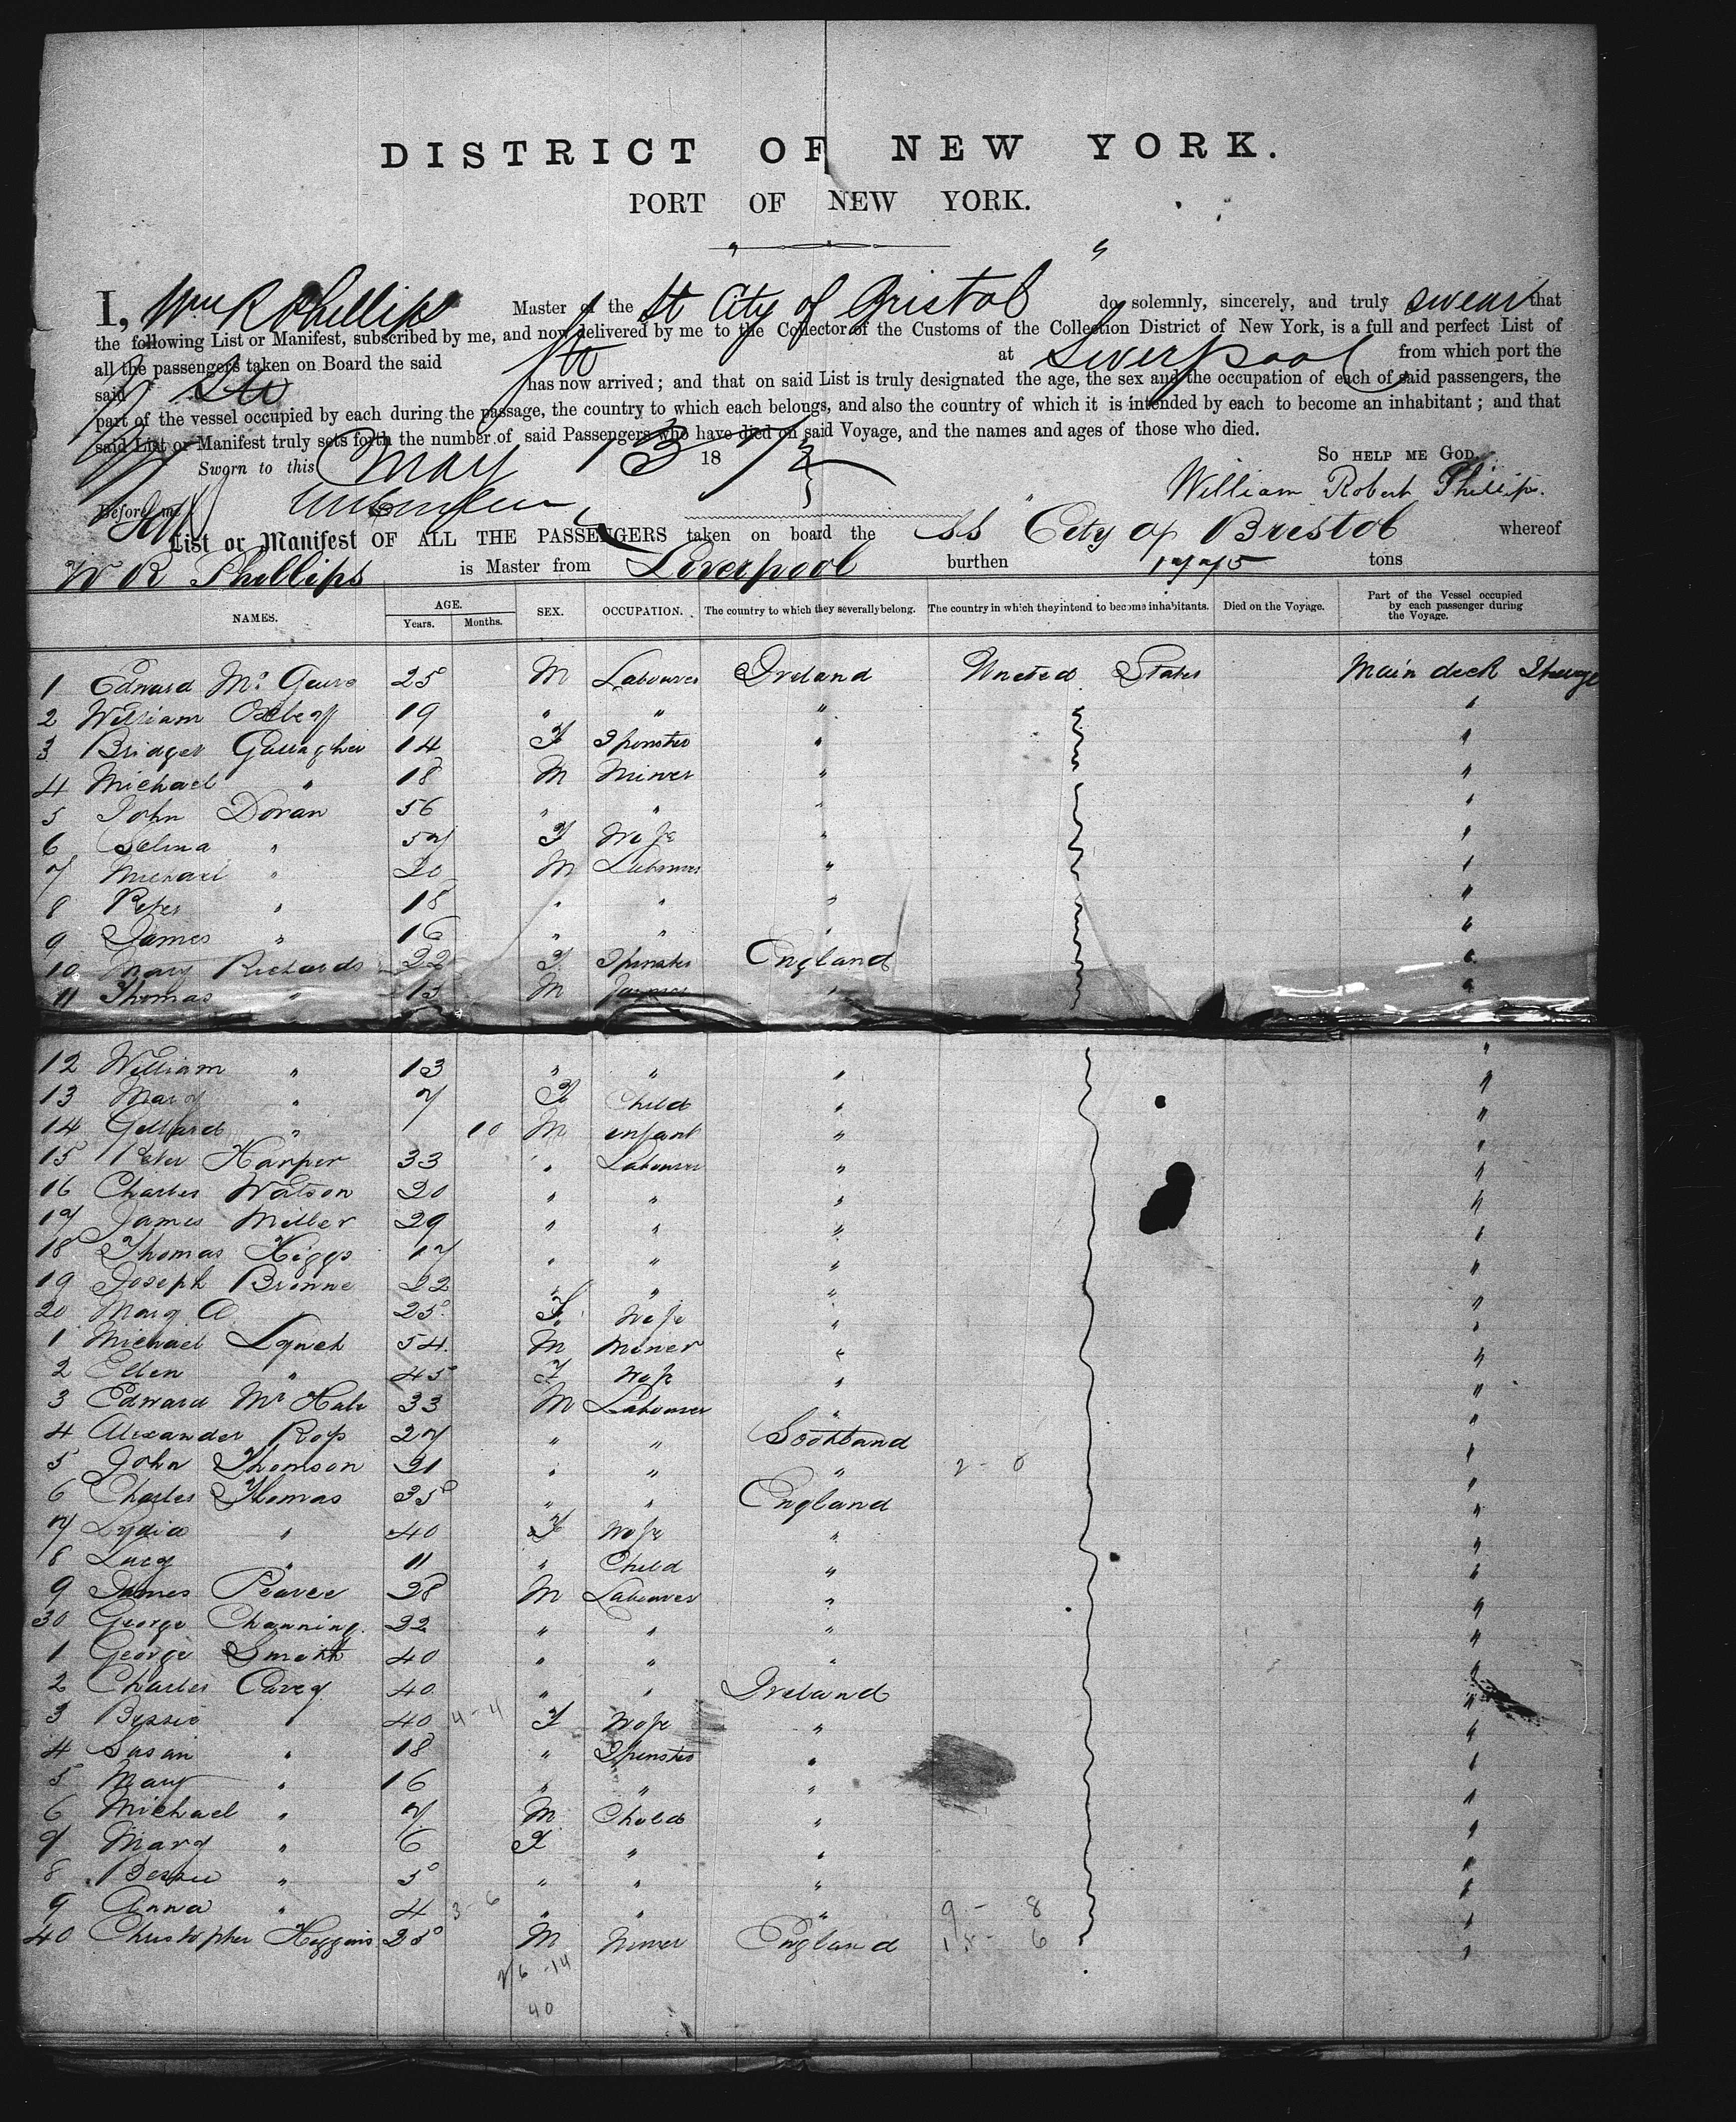 DISTRICT OF NEW YORK.
PORT OF NEW YORK.
I, Wm R Phillips Master of the St City of Bristol do solemnly, sincerely, and truly swear that
the following List or Manifest, subscribed by me, and now delivered by me to the Collector of the Customs of the Collection District of New York, is a full and perfect List of
all the passengers taken on Board the said Str at Liverpool from which port the
said Str has now arrived; and that on said List is truly designated the age, the sex and the occupation of each of said passengers, the
part of the vessel occupied by each during the passage, the country to which each belongs, and also the country of which it is intended by each to become an inhabitant; and that
said List or Manifest truly sets forth the number of said Passengers who have died on said Voyage, and the names and ages of those who died.
Sworn to this May 13 18 7 So HELP ME GOD.
Before me William Robert Phillips.
List or Manifest OF ALL THE PASSENGERS taken on board the SS City of Bristol whereof
W R Phillips is Master from Liverpool burthen 1775 tons
NAMES. AGE. Years. Months. SEX. OCCUPATION. The country to which they severally belong. The country in which they intend to become inhabitants. Died on the Voyage. Part of the Vessel occupied by each passenger during the Voyage.
1 Edward Mc 25 M Labourer Ireland United States Main deck
2 William 19 " " " "
3 Bridget Gallagher 14 F Spinster " "
4 Michael " 18 M Miner " "
5 John Doran 56 " " " "
6 Selina " 57 F Wife " "
7 Michael " 20 M Labourer " "
8 Peter " 18 " " " "
9 James " 16 " " " "
10 Mary Richards 22 F Spinster England "
11 Thomas " 15 M Farmer " "
12 William " 13 " " " "
13 Mary " 7 F Child " "
14 " 10 M infant " "
15 Peter Harper 33 " Labourer " "
16 Charles Watson 20 " " " "
17 James Miller 29 " " " "
18 Thomas Higgs 17 " " " "
19 Joseph Brinne 22 " " " "
20 Mary A " 25 F Wife " "
1 Michael Lynch 54 M Miner " "
2 Ellen " 45 F Wife " "
3 Edward Mc Hale 33 M Labourer " "
4 Alexander Ross 27 " " Scotland "
5 John Thomson 21 " " " 2 - 0 "
6 Charles Thomas 35 " " England "
7 Lydia " 40 F Wife " "
8 Lucy " 11 " Child " "
9 James Pearce 28 M Labourer " "
30 George Channing 32 " " " "
1 George Smith 40 " " " "
2 Charles Carey 40 " " Ireland "
3 Bessie " 40 4-4 F Wife " "
4 Susan " 18 " Spinster " "
5 Mary " 16 " " " "
6 Michael " 7 M Child " "
7 Mary " 6 F " " "
8 Bessie " 5 " " " "
9 Anna " 4 3-6 " " " 9 - 8 "
40 Christopher Higgins 25 M Miner England 15 - 6 "
26-14
40